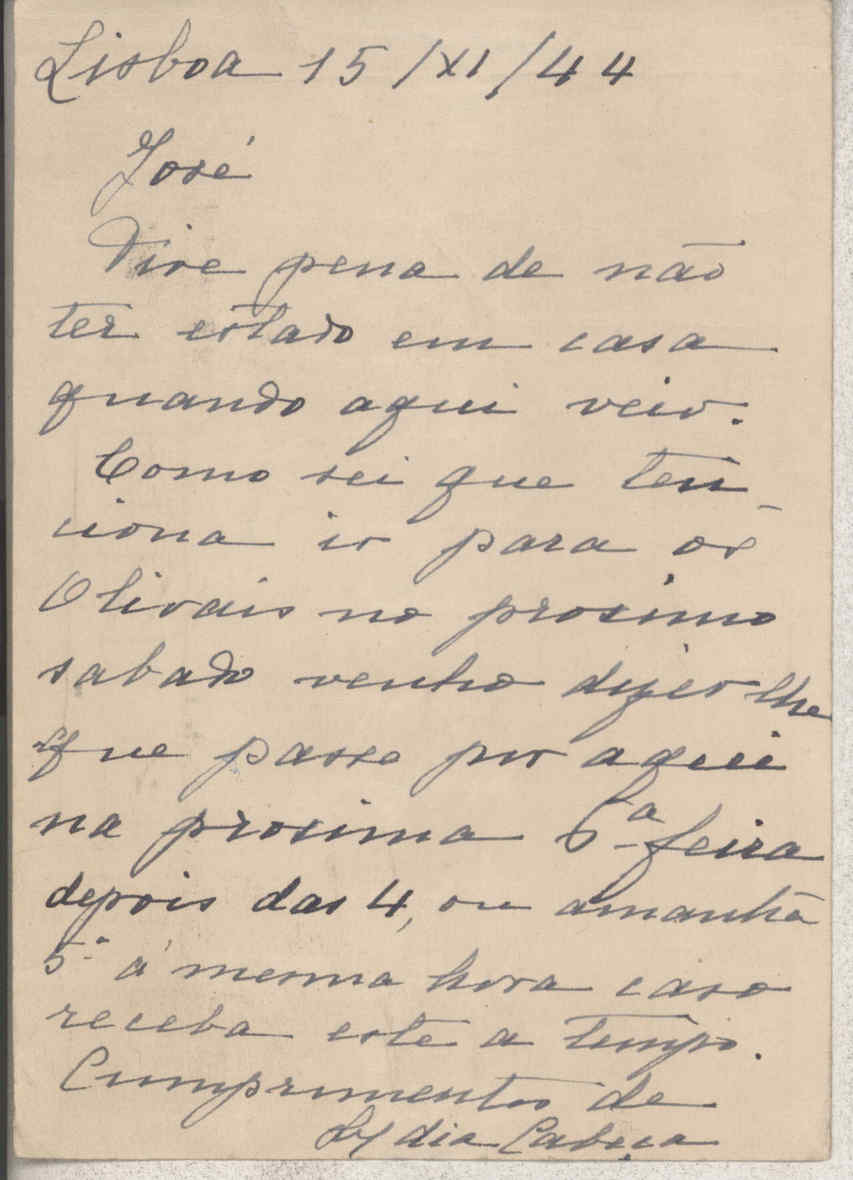 Lisboa 15/XI/44
José
Tive pena de não
ter estado em casa
quando aqui veio.
Como sei que ten-
ciona ir para os
Olivais no proximo
sabado venho dizer lhe
que passe por aqui
na proxima 6ª feira
depois das 4, ou amanhã
5ª á mesma hora caso
receba este a tempo.
Cumprimentos de
Lydia Cabeça